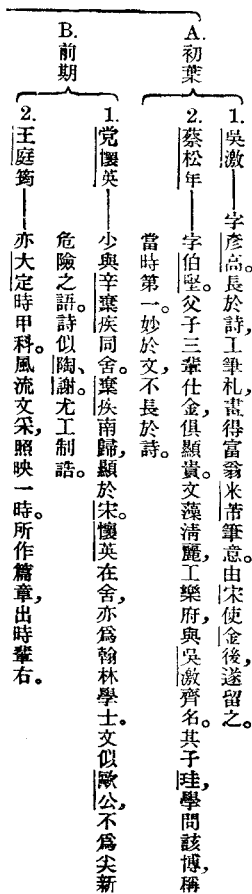 A.初葉
1.吳激——字彥高。長於詩,工筆札,畫得富翁米芾筆意。由宋使金後,遂留之。
2.蔡松年——字伯堅。父子三輩仕金,俱顯貴。文藻清麗,工樂府,與吳激齊名。其子珪學問該博,稱
當時第一。妙於文,不長於詩。
B.前期
1.党懷英——少與辛棄疾同舍。棄疾南歸,顯於宋。懷英在舍,亦爲翰林學士。文似歐公,不爲尖新
危險之語。詩似陶、謝。尤工制誥。
2.王庭筠——亦大定時甲科。風流文采,照映一時。所作篇章,出時輩右。